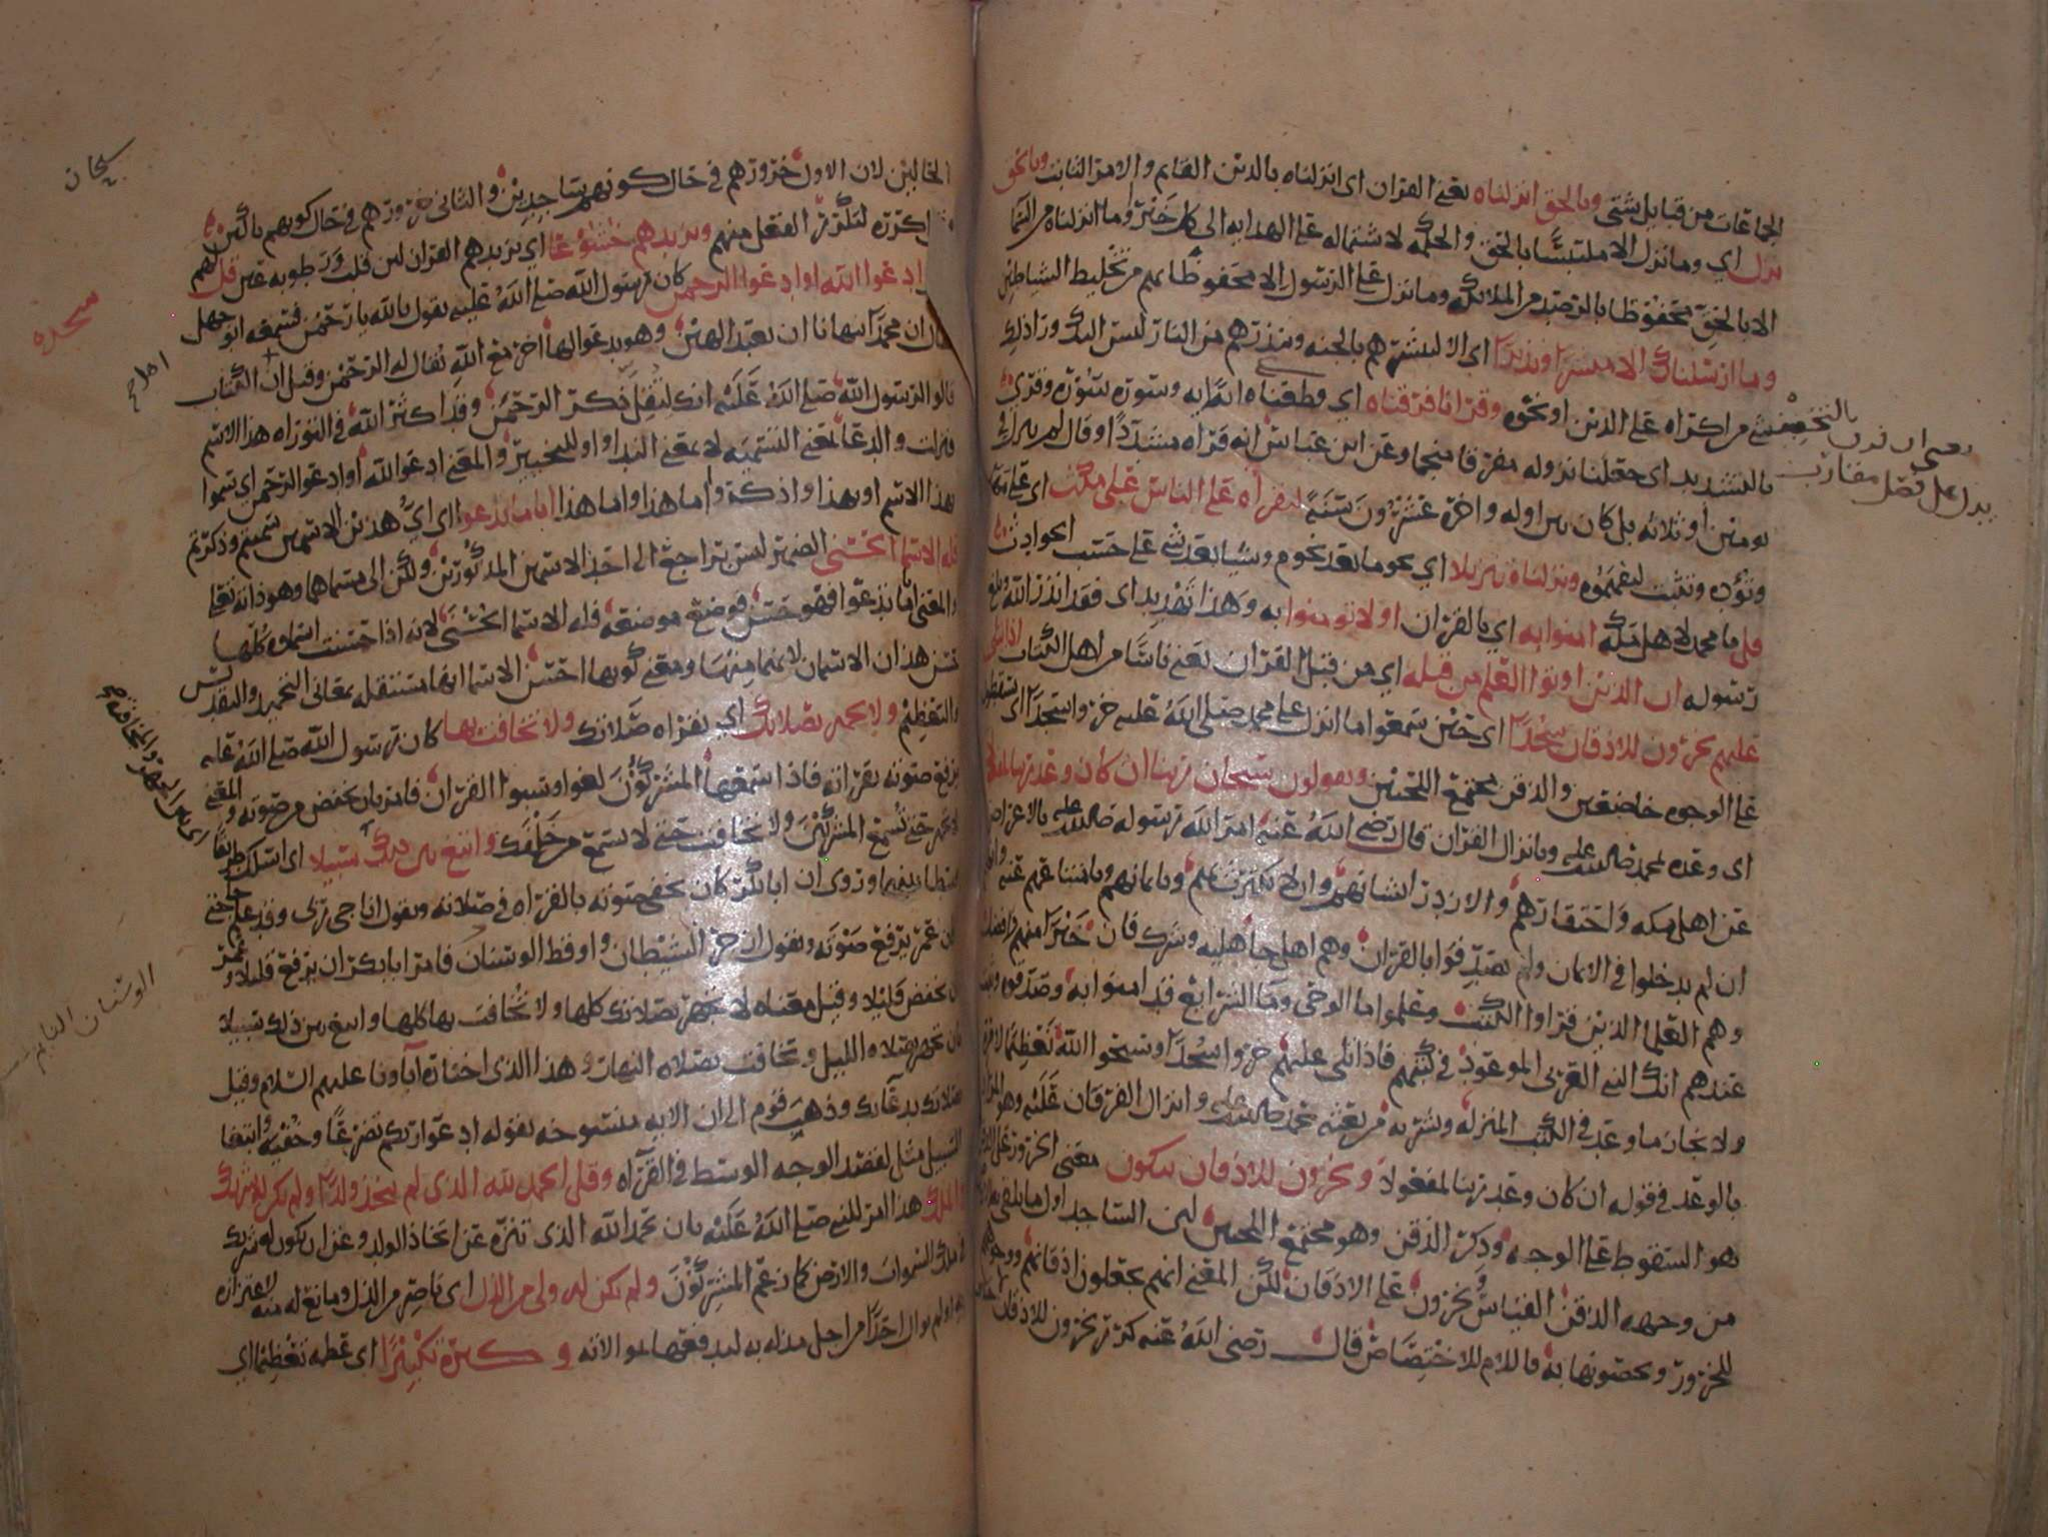 الجماعات من قبايل شتى وبالحق انزلناه يعني القران اى انزلناه بالدين القايم والامر الثابت وبالحق
نزل اي وما نزل الا ملتبسًا بالحق والحكمه لاشتماله على الهدايه الى كل خير وما انزلناه من السما
الا بالحق محفوظا بالرصد من الملائكه وما نزل على الرسول الا محفوظا بهم من تخليط الشياطين
وما ارسلناك الا مبشرا ونذيرا اى الا لتبشرهم بالجنه وتنذرهم من النار ليس اليك ورا ذلك
شي من اكراه على الدين او نحوه وقرانا فرقناه اي وقطعناه ايه ايه وسوره سوره وقرى
بالتشديد اى جعلنا نزوله مفرقا منجما وعن ابن عباس انه قراه مشددًا وقال لم ينزل في
يومين او ثلاثه بل كان بين اوله واخره عشرون سنة لتقراه على الناس على مكث اي على مهل
وتؤده وتثبت ليفهموه ونزلناه تنزيلا اي نجوما بعد نجوم وشيا بعد شي على حسب الحوادث
قل يا محمد لاهل مكه امنوا به اي بالقران او لا تومنوا به وهذا تهديد اى فقد انذر الله وبلغ
رسوله ان الذين اوتوا العلم من قبله اي من قبل القران يعني ناسًا من اهل الكتاب اذا يتلى
عليهم يخرون للاذقان سجدًا اي حين سمعوا ما انزل على محمد صلى الله عليه خروا سجدًا اى يسقطون
على الوجوه خاضعين والذقن مجتمع اللحيين ويقولون سبحان ربنا ان كان وعد ربنا لمفعولا
اى وعده لمحمد صلى الله عليه وبانزال القران قال رضي الله عنه امر الله رسوله صلى الله عليه بالاعراض
عن اهل مكه واحتقارهم والازدرا بشانهم وان لا يكترث بهم وبايمانهم وبامتناعهم عنه وانهم
ان لم يدخلوا في الايمان ولم يصدقوا بالقران وهم اهل جاهليه وشرك فان خيرا منهم وافضل
وهم العلما الذين قراوا الكتب وعلموا ما الوحي وما الشرايع قد امنوا به وصدقوه وثبت
عندهم انك النبي العربي الموعود في كتبهم فاذا تلى عليهم خروا سجدًا وسبحوا الله تعظيمًا لامره
ولانجاز ما وعد في الكتب المنزله وبشر به من بعثه محمد صلى الله عليه وانزال الفرقان عليه وهو المراد
بالوعد في قوله ان كان وعد ربنا لمفعولا ويخرون للاذقان يبكون معنى الخرور على الذقن
هو السقوط على الوجه وذكر الذقن وهو مجتمع اللحيين لان الساجد اول ما يلقى به الارض
من وجهه الذقن القياس يخرون على الاذقان لكن المعنى انهم يجعلون اذقانهم ووجوههم
للخرور ويخصونها به فاللام للاختصاص قال رضي الله عنه كرر يخرون للاذقان لاختلاف
بالتخفيف
معنى ان قدر
يدل على فصل متقارب
الحالين لان الاول خرورهم في حال كونهم ساجدين والثاني خرورهم في حال كونهم باكين
او كرره لتكرر الفعل منهم ويزيدهم خشوعًا اي يزيدهم القران لين قلب ورطوبه عين قل لهم
ادعوا الله او ادعوا الرحمن كان رسول الله صلى الله عليه يقول يا الله يا رحمن فسمعه ابو جهل
فقال ان محمدًا ينهانا ان نعبد الهين وهو يدعو الها اخر مع الله يقال له الرحمن وقيل ان اهل الكتاب
قالوا لرسول الله صلى الله عليه انك لتقل ذكر الرحمن وقد اكثر الله في التوراه هذا الاسم
فنزلت والدعا بمعنى التسميه لا بمعنى الندا واو للتخيير والمعنى ادعوا الله او ادعوا الرحمن اي سموا
بهذا الاسم او بهذا واذكروا اما هذا واما هذا اياما تدعوا اى اي هذين الاسمين سميتم وذكرتم
فله الاسما الحسنى الضمير ليس براجع الى احد الاسمين المذكورين ولكن الى مسماهما وهو ذاته تعالى
والمعنى اياما تدعوا فهو حسن فوضع موضعه فله الاسما الحسنى لانه اذا حسنت اسماوه كلها
حسن هذان الاسمان لانهما منها ومعنى كونها احسن الاسما انها مستقله بمعانى التحميد والتقديس
والتعظيم ولا تجهر بصلاتك اي بقراه صلاتك ولا تخافت بها كان رسول الله صلى الله عليه
يرفع صوته بقراته فاذا سمعها المشركون لغوا وسبوا القران فامر بان يخفض من صوته والمعنى
لا تجهر حتى تسمع المشركين ولا تخافت حتى لا تسمع من خلفك وابتغ بين ذلك سبيلا اى اسلك طريقًا
وسطا بينهما وروى ان ابا بكر كان يخفي صوته بالقراه في صلاته ويقول اناجي ربى وقد علم حاجتي
وكان عمر يرفع صوته ويقول ازجر الشيطان واوقظ الوسنان فامر ابا بكر ان يرفع قليلا وعمر
ان يخفض قليلا وقيل معناه لا تجهر بصلاتك كلها ولا تخافت بها كلها وابتغ بين ذلك سبيلا
بان تجهر بصلاه الليل وتخافت بصلاه النهار وهذا الذى اختاره آباونا عليهم السلام وقيل
بصلاتك بدعائك وذهب قوم الى ان الايه منسوخه بقوله ادعوا ربكم تضرعًا وخفيه وابتغا
السبيل مثل لقصد الوجه الوسط في القرآه وقل الحمد لله الذى لم يتخذ ولدًا ولم يكن له شريك
في الملك هذا امر للنبي صلى الله عليه بان يحمد الله الذى تنزه عن اتخاذ الولد وعن ان يكون له شريك
في ملك السموات والارض كما زعم المشركون ولم يكن له ولى من الذل اى ناصر من الذل ومانع له منه لاعتزازه
به او لم يوال احدًا من اجل مذله به ليدفعها بموالاته وكبره تكبيرًا اى عظمه تعظيما اي
سبحان
سجده
اهل ح
اى بين الجهر والمخافته
الوسنان النايم